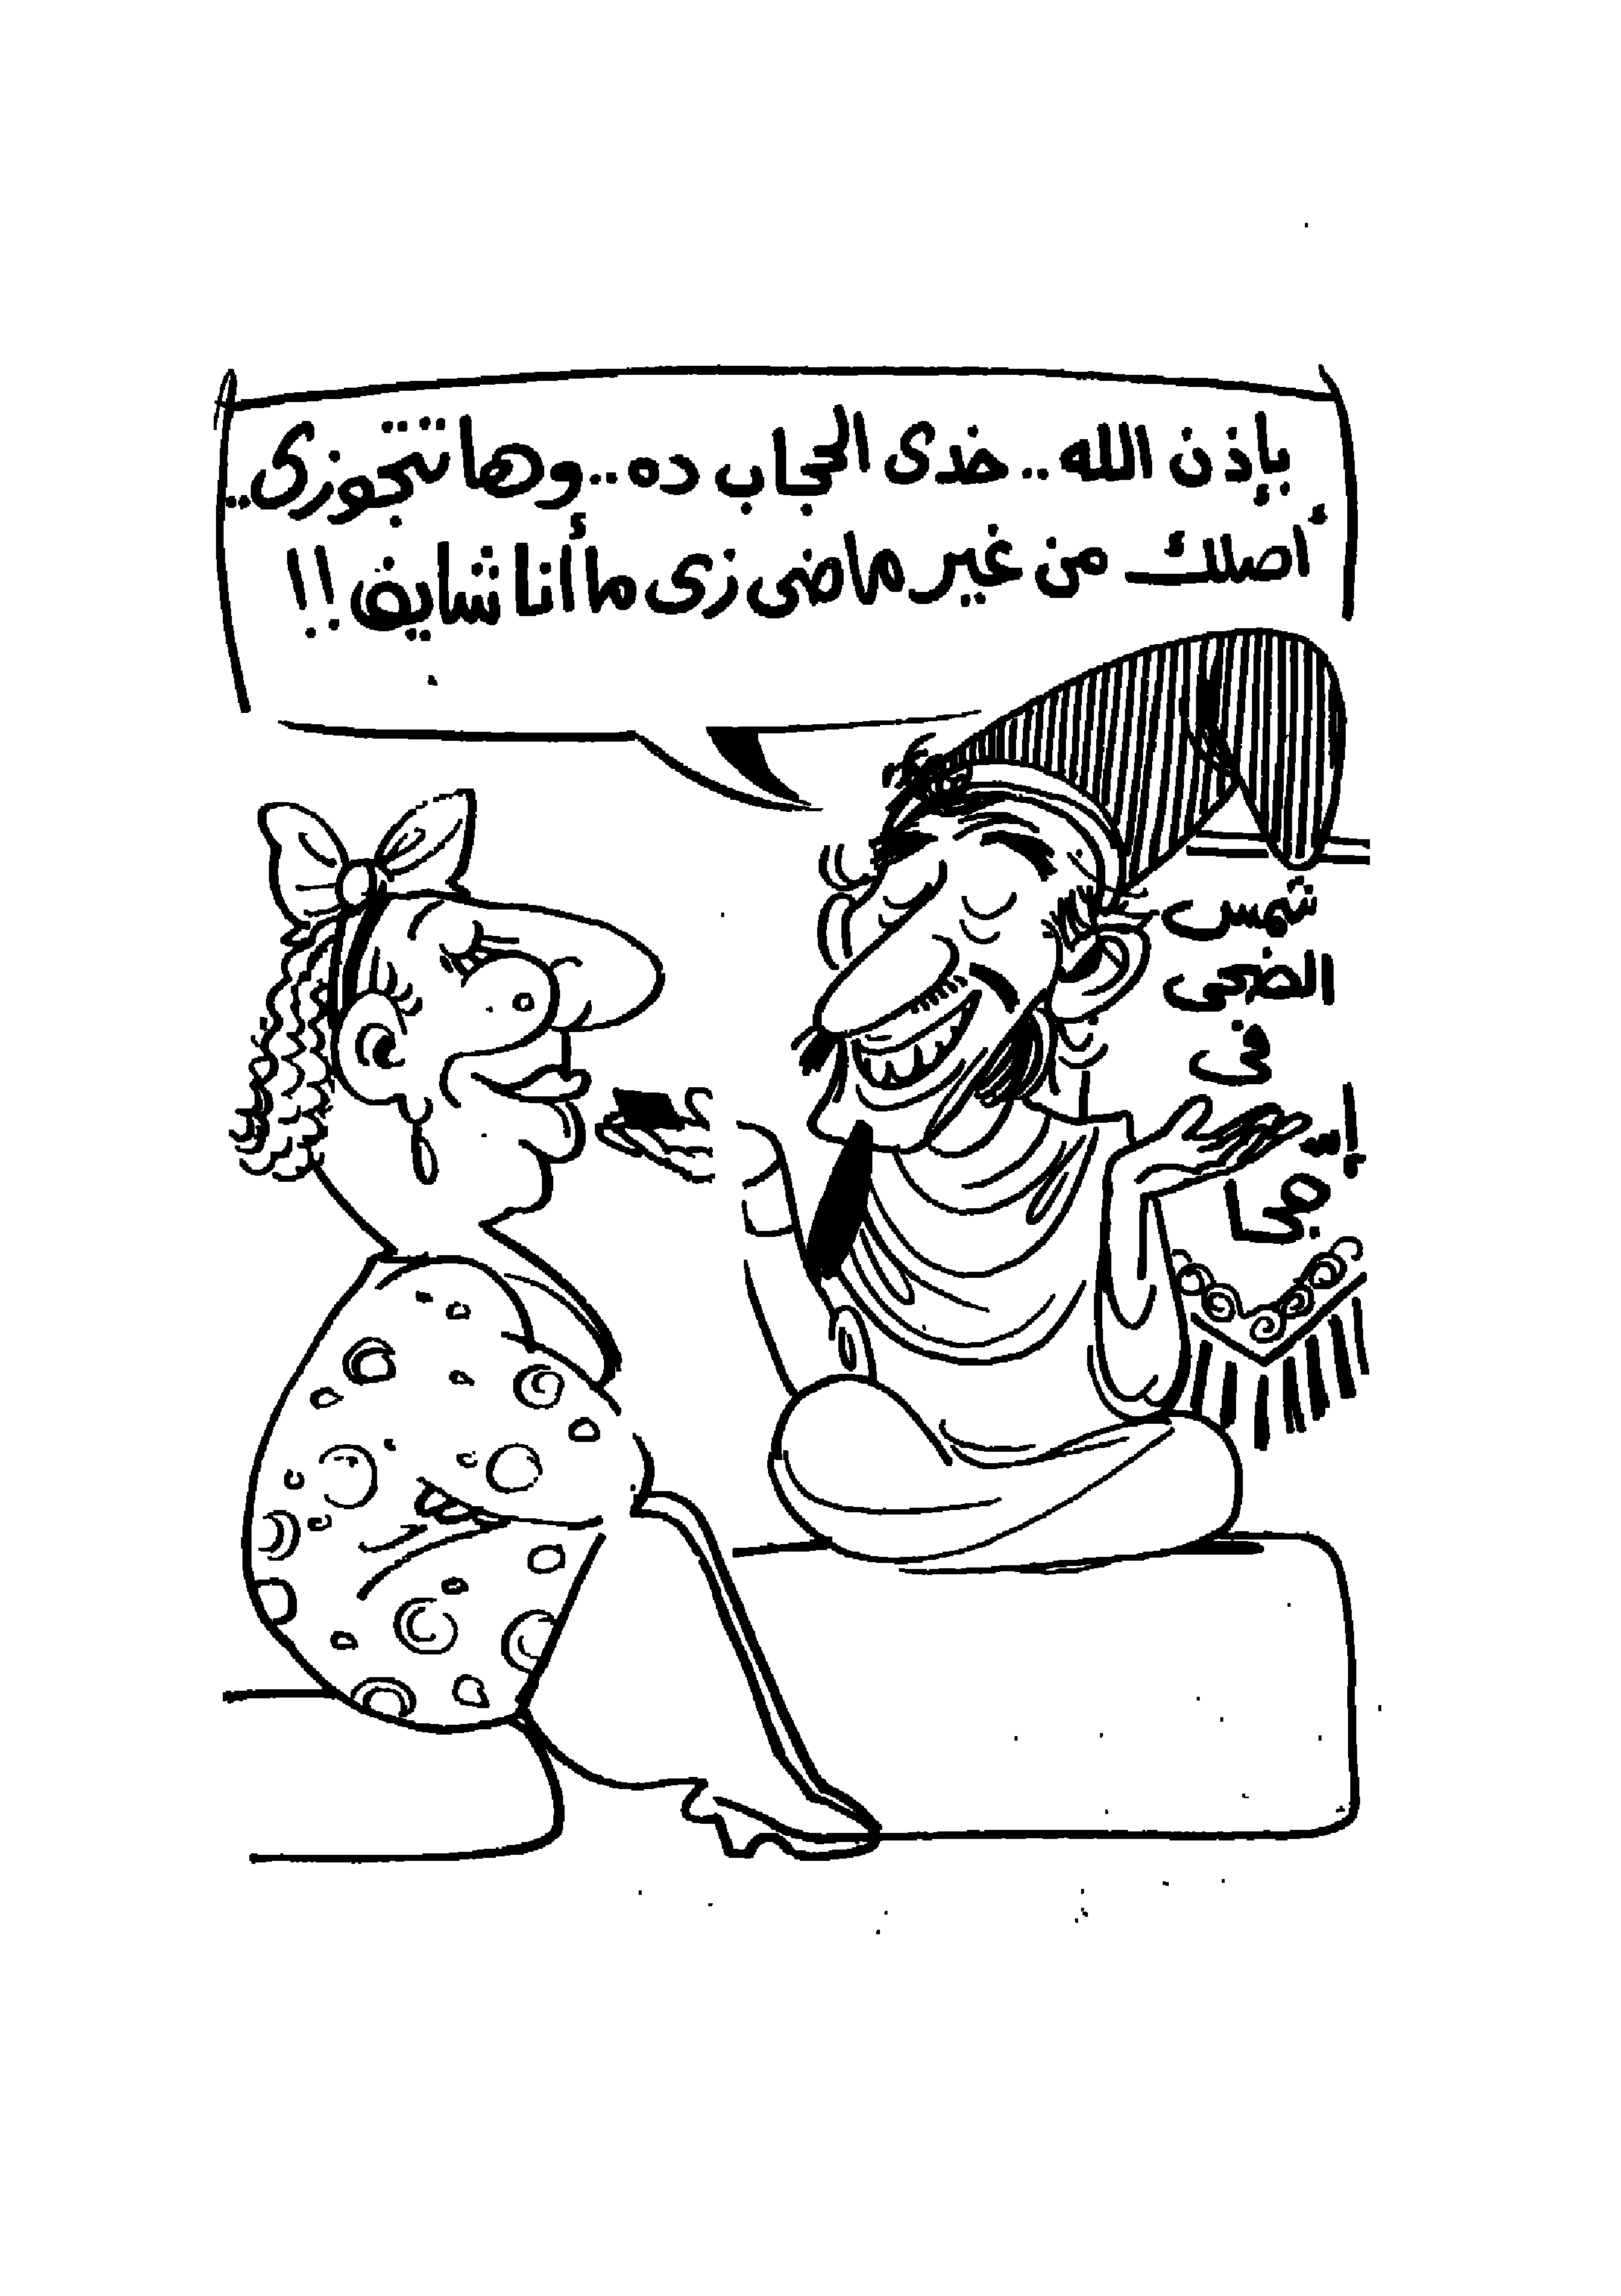 بإذن الله.. خدى الحجاب ده.. وها تتجوزى..
أصلك من غير ماضى زى ما أنا شايف!!
شمس
الضحى
فى